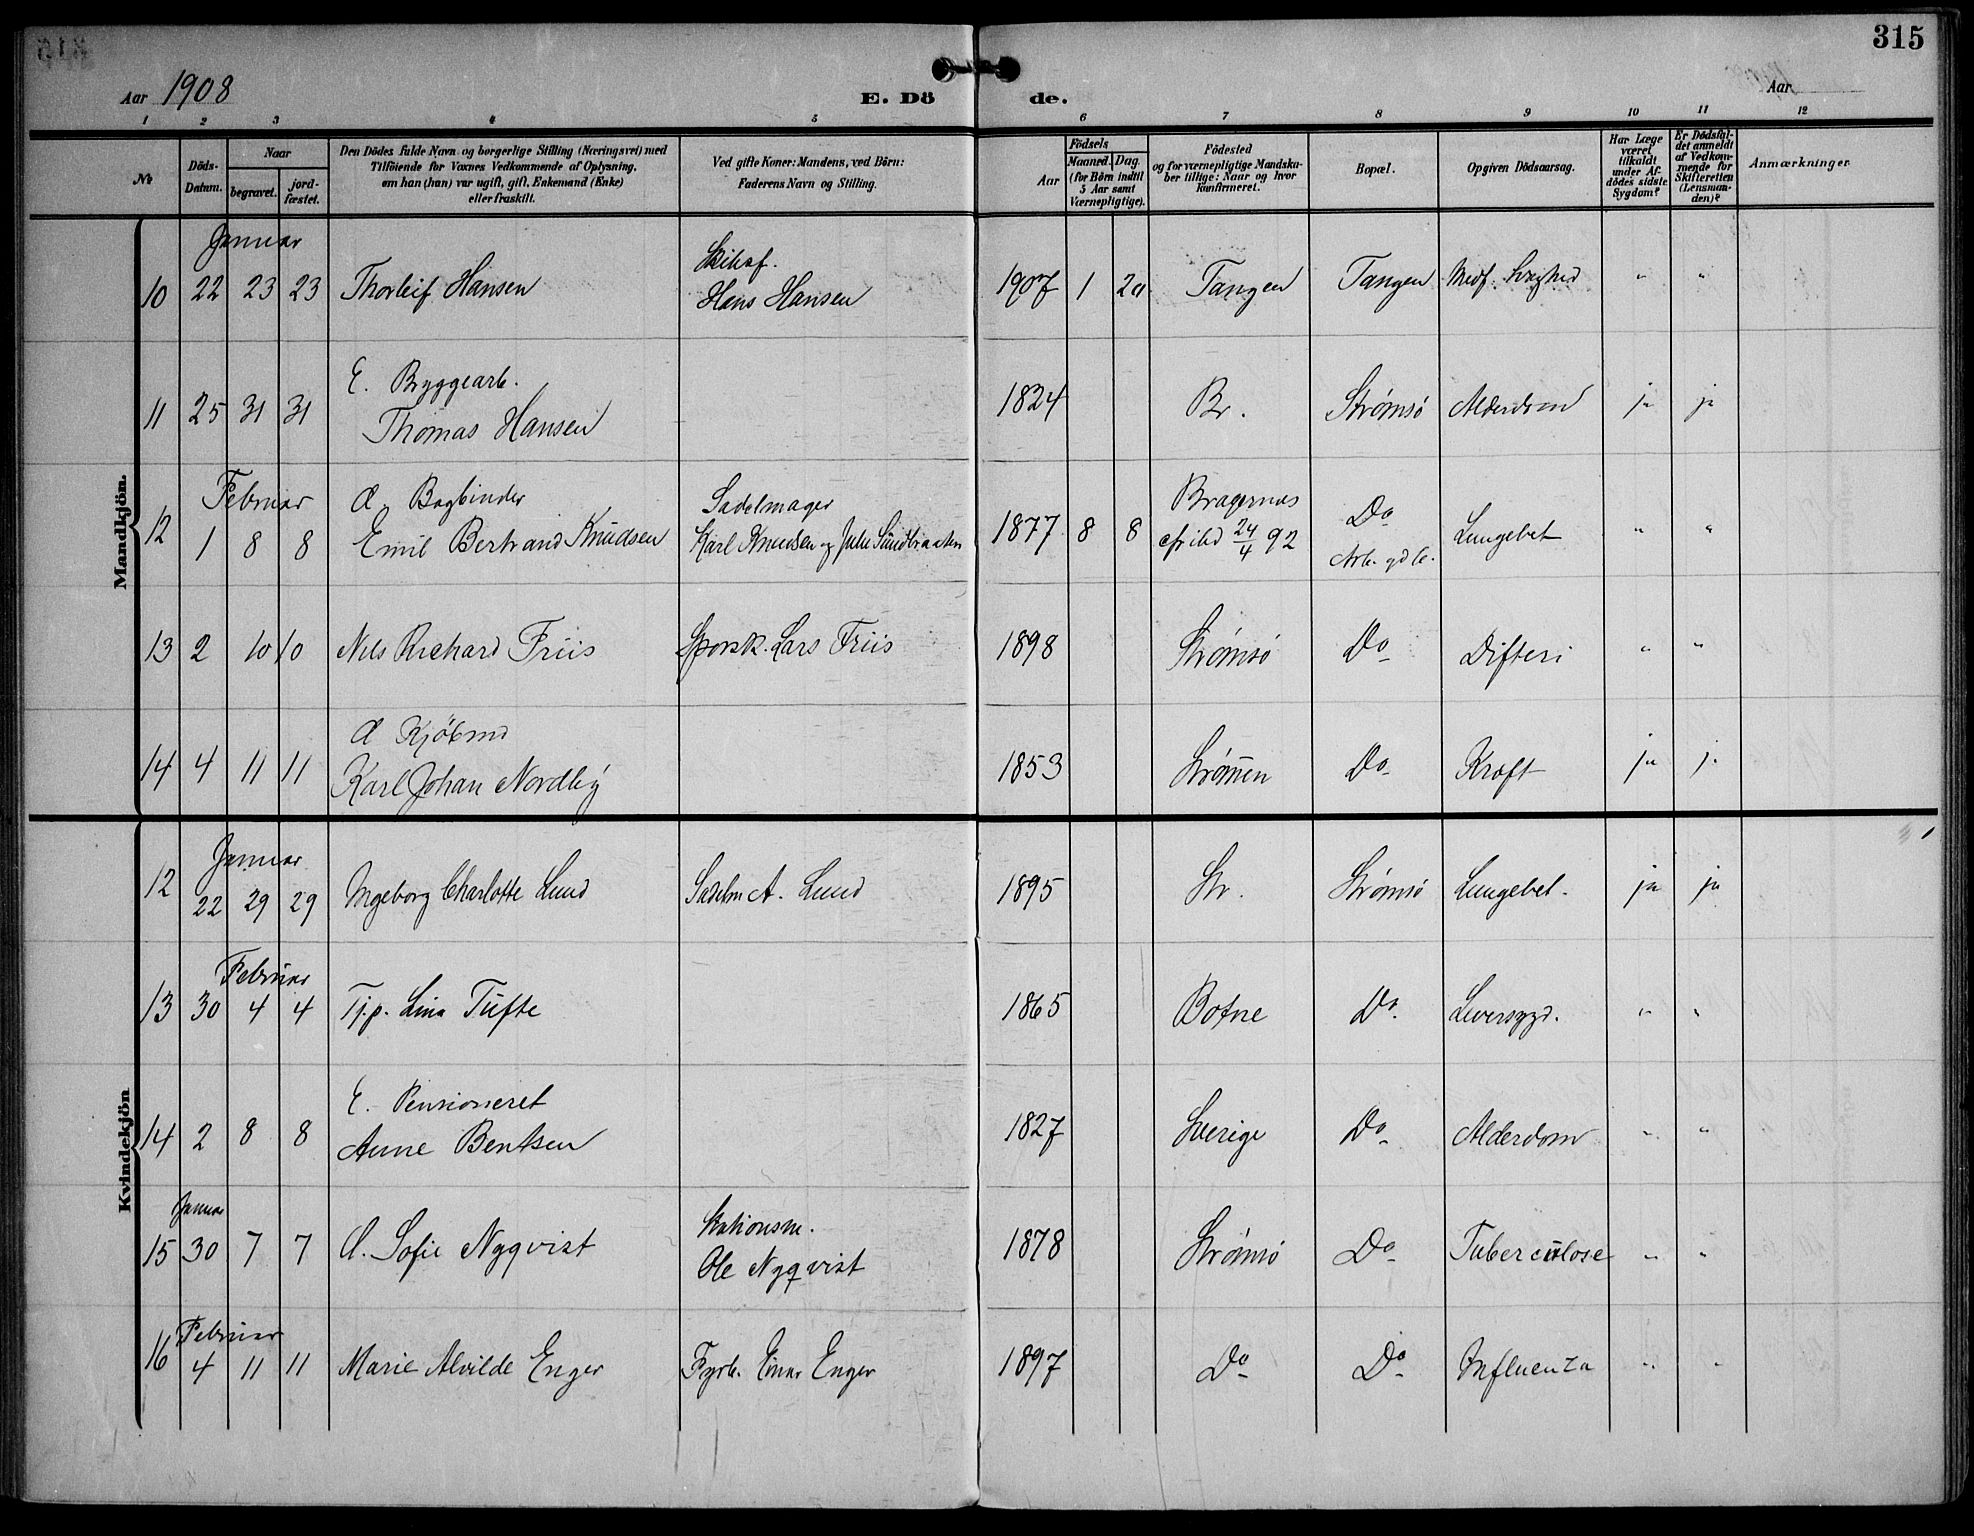 315
Aar 1908 E. Dö de. Aar
1 2 3 4 5 6 7 8 9 10 11 12
№
Döds-Datum.
Naar
begravet.
jord-fæstet.
Den Dödes fulde Navn og borgerlige Stilling (Næringsvei) med
Tilföiende for Voxnes Vedkommende af Oplysning,
om han (hun) var ugift, gift, Enkemand (Enke)
eller fraskilt.
Ved gifte Koner: Mandens, ved Börn:
Faderens Navn og Stilling.
Födsels
Aar
Maaned. Dag.
(for Börn indtil
5 Aar samt
Værnepligtige).
Födested
og for værnepligtige Mandska-
ber tillige: Naar og hvor
konfirmeret.
Bopæl.
Opgiven Dödsaarsag.
Har Læge
været
tilkaldt
under Af-
dödes sidste
Sygdom?
Er Dödsfal-
det anmeldt
af Vedkom-
mende for
Skifteretten
(Lensman-
den)?
Anmærkninger
Mandkjön.
Januar
10 22 23 23 Thorleif Hansen
Hans Hansen 1907 1 Tangen Tangen Medf. Svaghed " "
E. Byggearb.
11 25 31 31 Thomas Hansen 1824 Br. Strømsö Alderdom ja ja
Februar
U. Bogbinder
Sadelmager
Bragernes
Do
12 1 8 8 Emil Bertrand Knudsen Karl Knudsen og Julie Sundbraaten 1877 8 8 24/4 92 Lungebet " "
13 2 10 10 Nils Richard Friis Sporsk. Lars Friis 1898 Strømsö Do Difteri " "
Kjöbmd
14 4 11 11 Karl Johan Nordby 1853 Strömmen Do Kræft ja ja
Kvindekjön
Januar
12 22 29 29 Ingeborg Charlotte Lund Sadelm A. Lund 1895 Str. Strømsö Lungebet. ja ja
Februar
13 30 4 4 Tj.p. Lina Tufte 1865 Botne Do. Leversygd. " "
E. Pensioneret
14 2 8 8 Anne Bentsen 1827 Sverige Do Alderdom " "
Januar
Stationsm.
15 30 7 7 U. Sofie Nyqvist Ole Nyqvist 1878 Strømsö Do Tuberculose " "
Februar
16 4 11 11 Marie Alvilde Enger Fyrb. Einar Enger 1897 Do Do Influenza " "